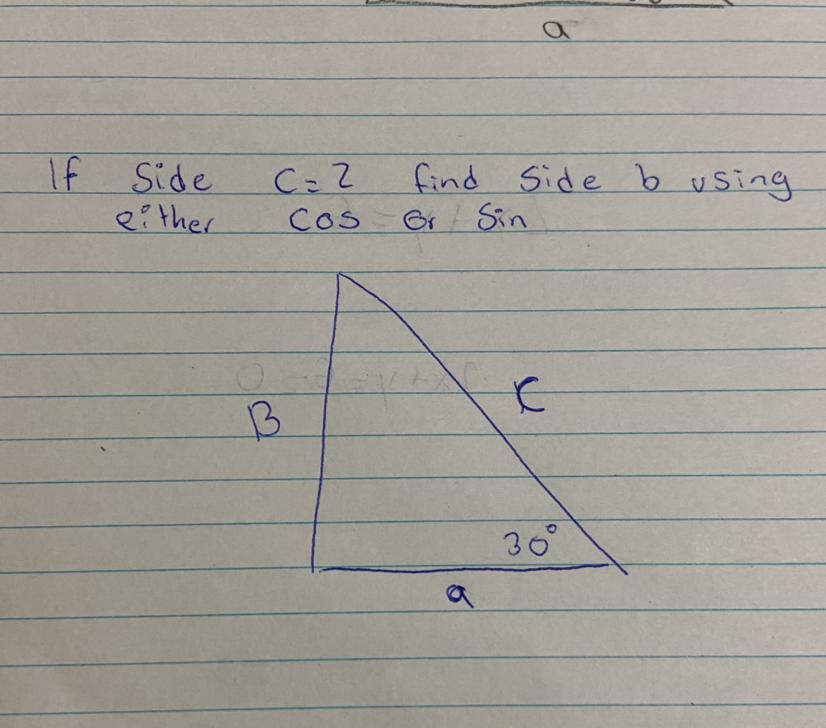 a
If Side C=2 find Side b using
either Cos or Sin
B
C
30°
a